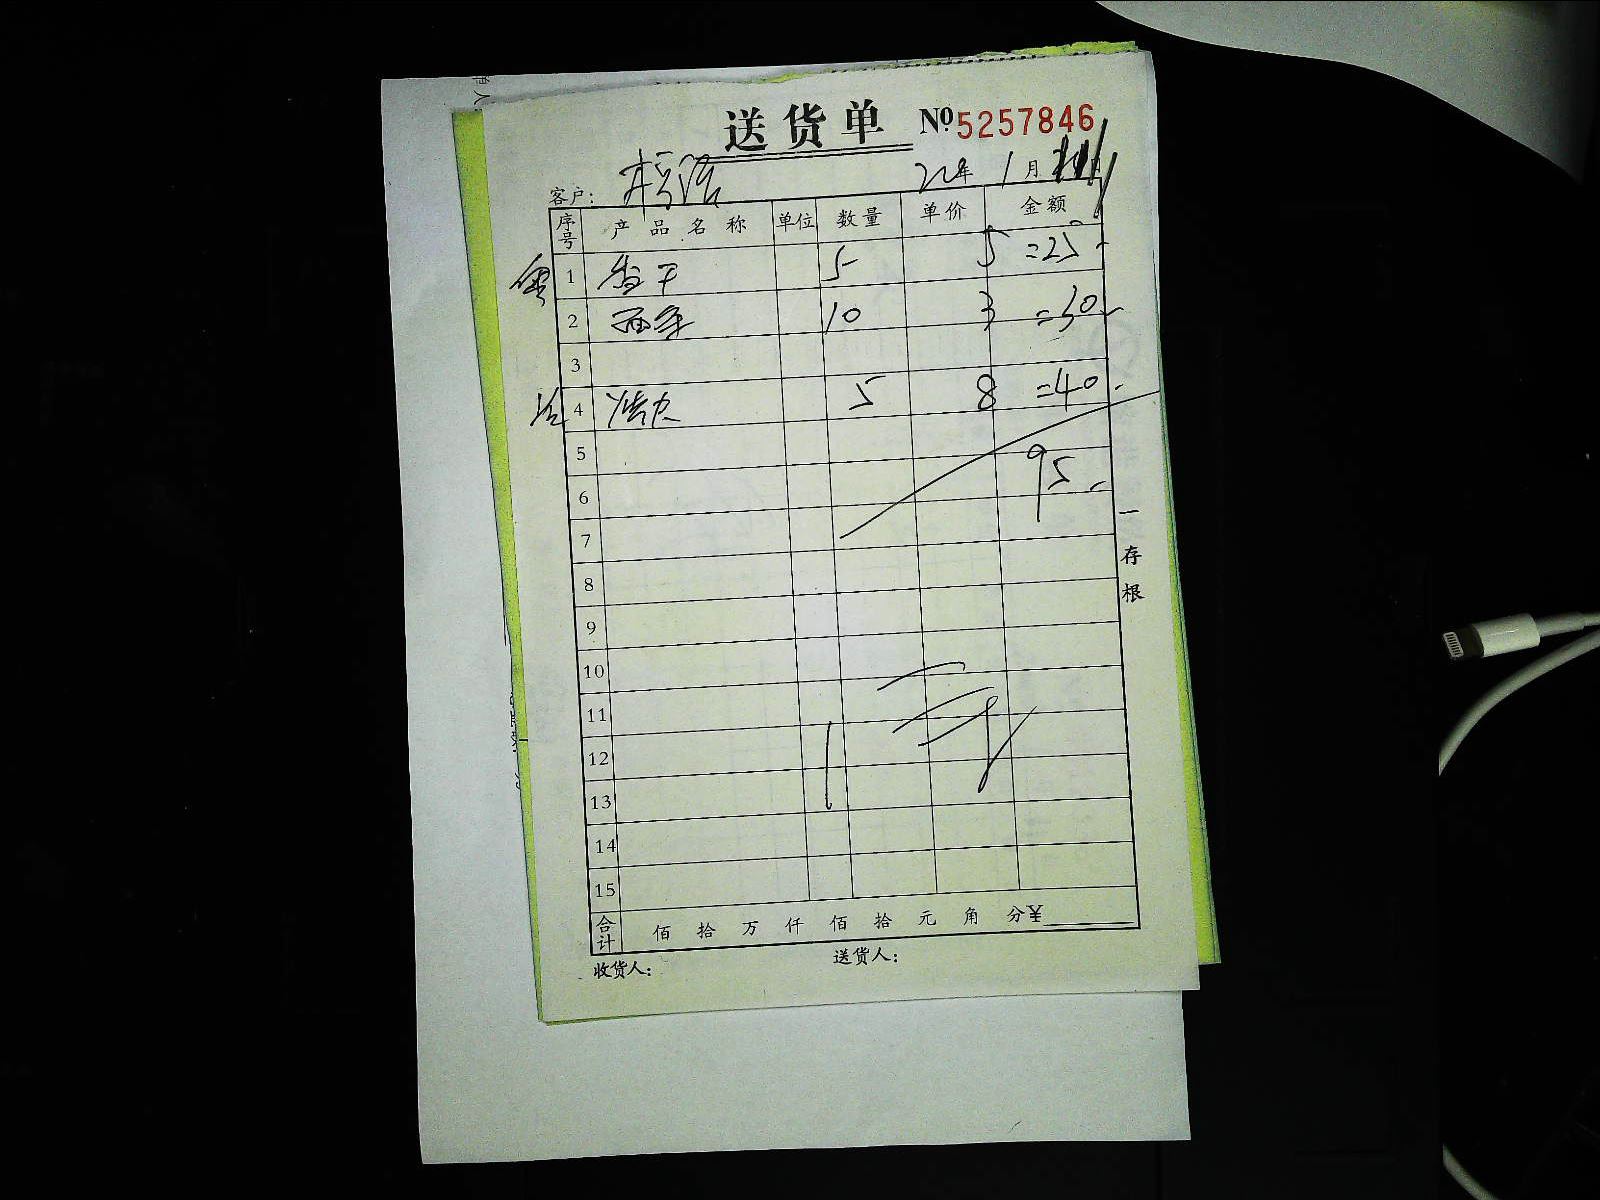 送货单 №5257846
客户: 22年 1月
序号 产品名称 单位 数量 单价 金额
1 香干 5 5 =25-
2 西芹 10 3 =30-
3
4 5 8 =40-
5 95-
6
7
8
9
10
11
12
13
14
15
合计 佰 拾 万 仟 佰 拾 元 角 分¥
收货人: 送货人:
一存根